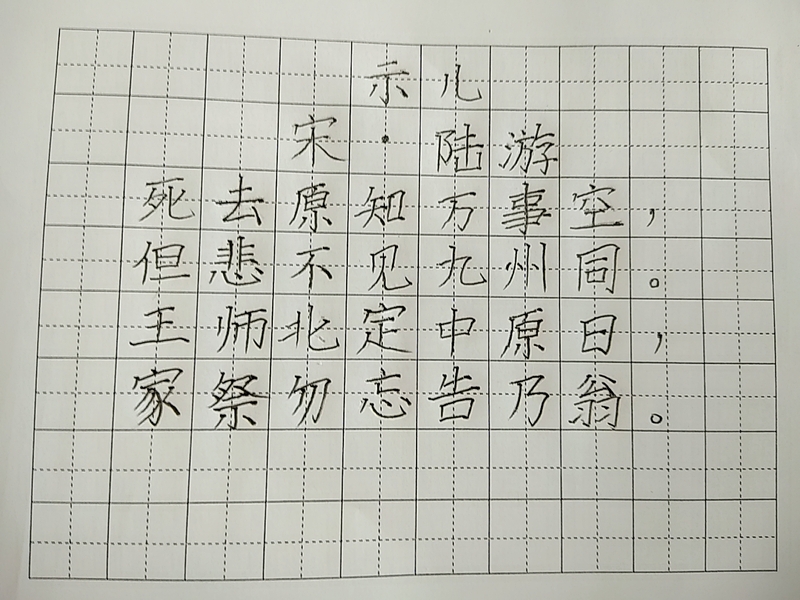 示儿
宋·陆游
死去原知万事空，
但悲不见九州同。
王师北定中原日，
家祭勿忘告乃翁。